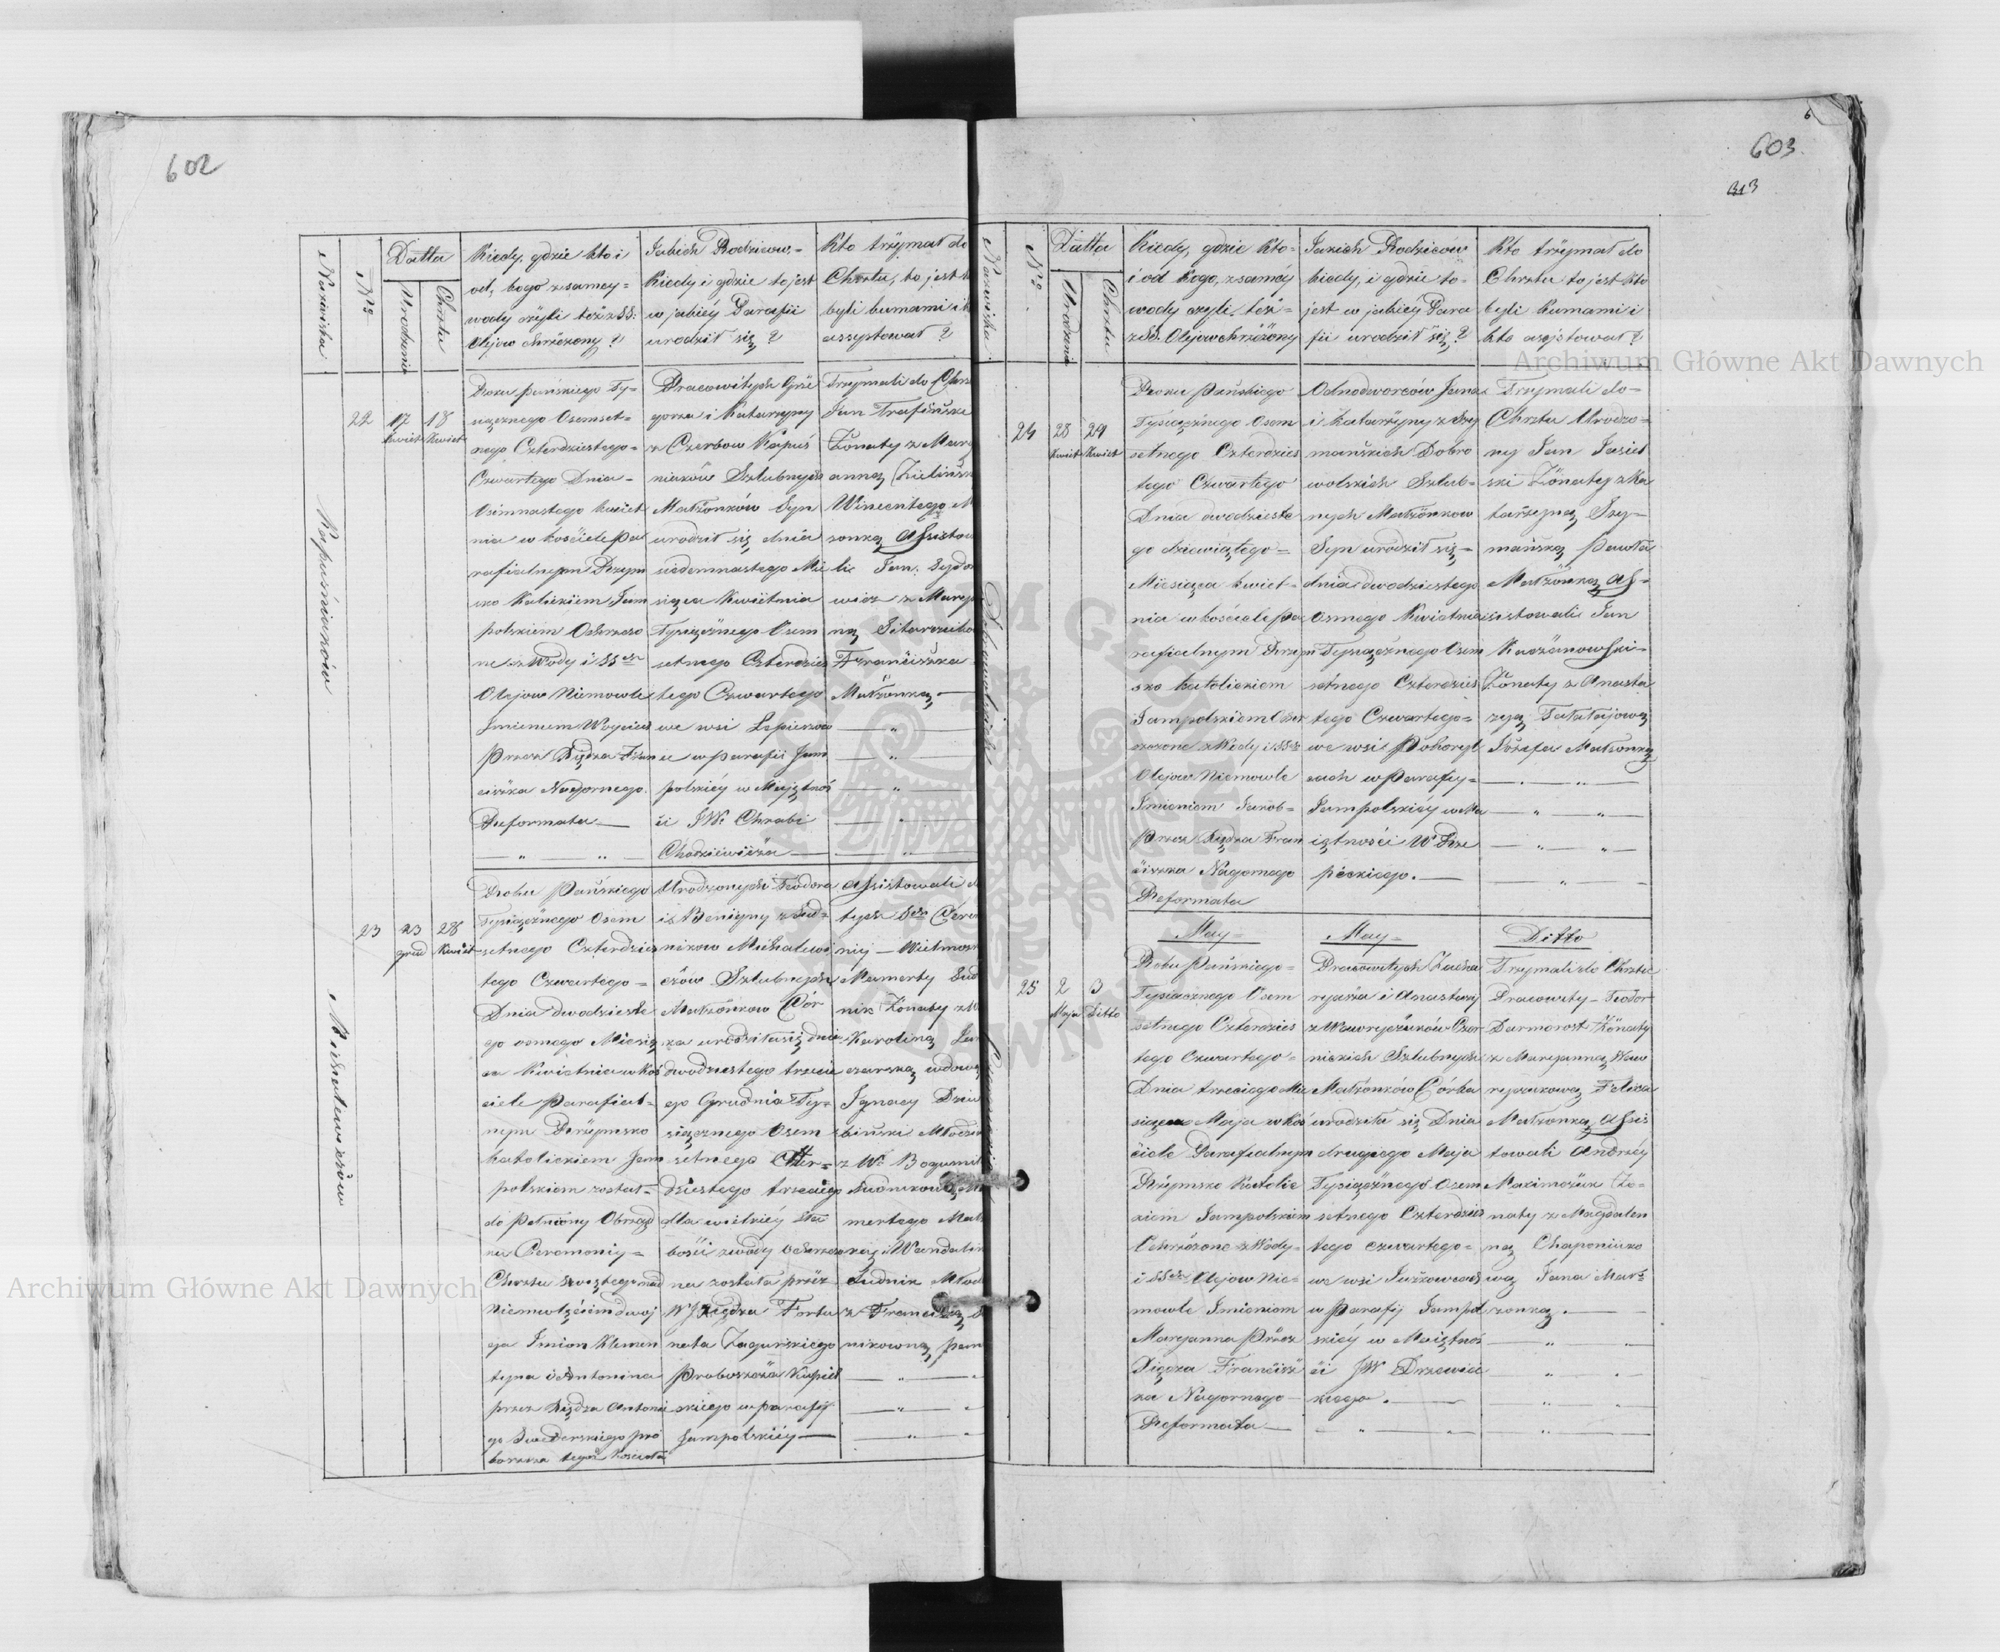 602
Nazwiska
Nro
Datta
Urodzenia
Chrztu
Kiedy, gdzie kto i
od, kogo z samey
wody czyli też z SS:
Olejow chrzczony?
Jakich Rodzicow,
Kiedy i gdzie to jest
w jakiéy Parafii
urodził się?
Kto trzymał do
Chrztu, to jest
byli kumami i
assystował?
Kapuśniaków
22
17
Kwiet
18
Kwiet
Roku Pańskiego Ty-
siącznego Osemset-
nego Czterdziestego-
Czwartego Dnia-
Osimnastego kwiet
nia w kościele Pa
rafialnym Rzym
sko Katolickiem Jam
polskiem Ochrzczo
ne z Wody i SStch
Olejow Niemowle
Jmieniem Woyciech
Przez Xiędza Fran
ciszka Nagornego
Reformata
Pracowitych Grze
gorza i Katarzyny
z Czerbow Kapuś
niaków Szlubnych
Małżonków Syn
urodził się dnia
siedemnastego Mie
siąca Kwietnia
Tysiącznego Osem
setnego Czterdzies
tego Czwartego
we wsi
w parafii Jam
polskiéy w Majętnoś
ci JW. Chrabi
Chodkiewicza
Trzymali do Chrz
Jan
Żonaty z Mary
anną
Wincentego
żonką Assisto
li Jan
wicz z Mary
ną
Franciszka
Małżonką
Michalewiczów
23
23
grud
28
Kwiet
Roku Pańskiego
Tysiącznego Osem
setnego Czterdzies
tego Czwartego =
Dnia dwodzieste
go osmego Miesią
ca Kwietnia w Koś
ciele Parafial-
nym Rzymsko
Katolickiem Jam
polskiem został-
do pełniony Obrząd
ek Ceremonij =
Chrztu Swiętego nad
Niemowlęciem dwoj
ga Imion Klemen
tyna i Antonina
przez Xiędza Antonie
go pro
boszcza tegoż Kościoła
Urodzonych Teodora
i Benigny z Sud-
nikow Michalewi
czów Szlubnych
Małżonkow Cór
ka urodziła się dnia
dwodziestego trzecie
go Grudnia Ty-
siącznego Osem
setnego Czter-
dziestego trzeciego
dla wielkiéy sła
bości z wody Ochrzczo
na została przez
W. Xiędza Fortu
nata Zagurskiego
Proboszcza Kupiel
skiego w parafij
Jampolskiéy
Assistowali
tych Sto Cere
nij — Wielmoż
Mamerty Sud
nik Żonaty z
Karoliną
wdową
Ignacy
z W. Bogumił
Sudnikową
mertego Mał
ką i Wandalin
Sudnik Młod
z Franciszką
nikowną pan
603
313
Nazwiska
Nro
Datta
Urodzenia
Chrztu
Kiedy, gdzie kto-
i od kogo, z samej
wody czyli, też-
z SS. Olejow chrzczony
Jakich Rodziców
kiedy, i gdzie to-
jest w jakiéy Para
fii urodził się?
Kto trzymał do
Chrztu to jest kto
byli Kumami i
kto asystował?
Dobrowolskich
24
28
Kwiet
29
Kwiet
Roku Pańskiego
Tysiącznego Osem
setnego Czterdzies
tego Czwartego
Dnia dwodzieste
go dziewiątego =
Miesiąca kwiet-
nia w kościele Pa
rafialnym Rzym
sko katolickiem
Jampolskiem Ochrz
czczone z Wody i SStch
Olejow Niemowle
Imieniem Jakób-
Przez Xiędza Fran
ciszka Nagornego
Reformata
Odnodworców Jana
i Katarzyny z Szy
mańskich Dobro
wolskich Szlub-
nych Małżonkow
Syn urodził się =
dnia dwodziestego
osmego Kwietnia
Tysiącznego Osem
setnego Czterdzies
tego Czwartego =
we wsi
w Parafij =
Jampolskiéy w Ma
iętności W. Rze
péckiego.
Trzymali do-
Chrztu Urodzo-
ny Jan Jasiel
ski Żonaty z Ka
tarżyną Szy-
mańską Pawła
Małżonką As-
sistowali Jan
Kaczanowski-
Żonaty z Anasta
zyą
Józefa Małżonką
May
May
Ditto
25
2
Maja
3
Ditto
Roku Pańskiego =
Tysiącznego Osem
setnego Czterdzies
tego Czwartego-
Dnia trzeciego Mie
siąca Maja w Koś
ciele Parafialnym
Rzymsko Katolic
kiem Jampolskiem
Ochrzczone z Wody-
i SStch Olejow Nie-
mowle Imieniem
Maryanna Przez
Xiędza Francisz
ka Nagornego
Reformata
Pracowitych Zacha
ryasza i Anastazy
z Wawryczuków Czer
nickich Szlubnych
Małżonków Córka
urodziła się Dnia
drugiego Maja
Tysiącznego Osem
setnego Czterdzies
tego czwartego-
we wsi
w Parafij Jampol
skiéy w Maiętnoś
ci JW Rzewuc
kiego.
Trzymali do Chrztu
Pracowity- Teodor
Darmorost Żonaty
z Maryanną Waw
ryczukową Felixa
Małżonką Assis
towali Andrzéy
Maximczuk Żo-
naty z Magdalen
ną Chaponiuko
wą Jana Mał-
żonką.
Archiwum Główne Akt Dawnych
Archiwum Główne Akt Dawnych